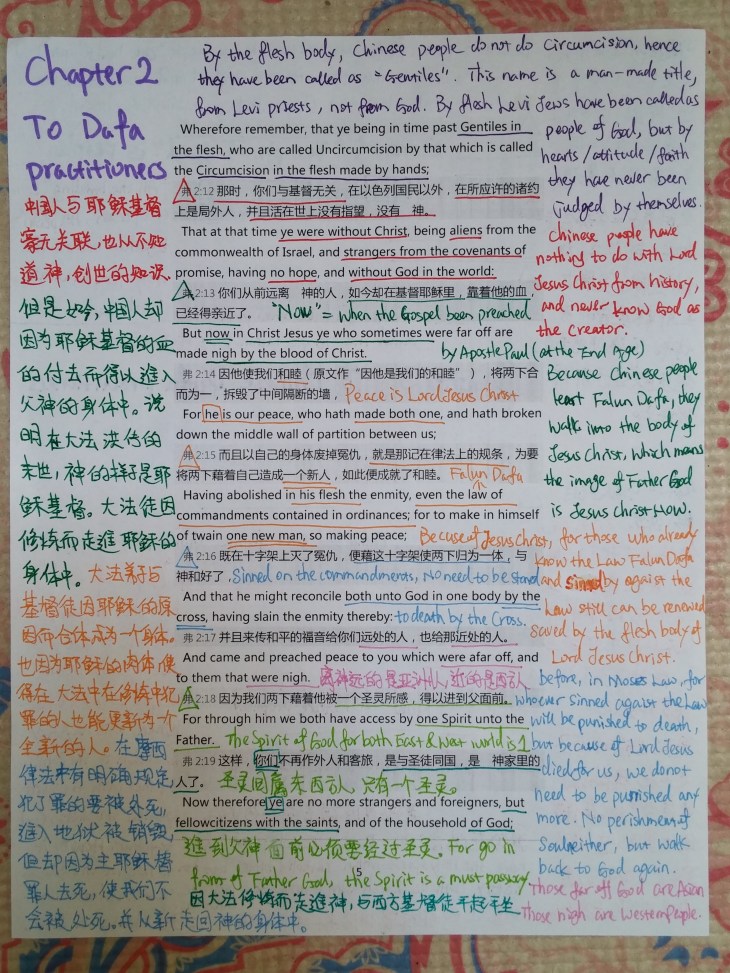 Chapter 2
To Dafa
practitioners
By the flesh body, Chinese people do not do circumcision, hence
they have been called as "Gentiles". This name is a man-made title,
from Levi priests, not from God. By flesh Levi Jews have been called as
people of God, but by
hearts/attitude/faith
they have never been
judged by themselves.
Wherefore remember, that ye being in time past Gentiles in
the flesh, who are called Uncircumcision by that which is called
the Circumcision in the flesh made by hands;
弗 2:12 那时，你们与基督无关，在以色列国民以外，在所应许的诸约
上是局外人，并且活在世上没有指望，没有 神。
That at that time ye were without Christ, being aliens from the
commonwealth of Israel, and strangers from the covenants of
promise, having no hope, and without God in the world:
弗 2:13 你们从前远离 神的人，如今却在基督耶稣里，靠着他的血，
已经得亲近了。
"Now" = when the Gospel been preached
But now in Christ Jesus ye who sometimes were far off are
made nigh by the blood of Christ.
by Apostle Paul (at the End Age)
弗 2:14 因他使我们和睦（原文作"因他是我们的和睦"），将两下合
而为一，拆毁了中间隔断的墙，
Peace is Lord Jesus Christ
For he is our peace, who hath made both one, and hath broken
down the middle wall of partition between us;
弗 2:15 而且以自己的身体废掉冤仇，就是那记在律法上的规条，为要
将两下藉着自己造成一个新人，如此便成就了和睦。
Falun Dafa
Having abolished in his flesh the enmity, even the law of
commandments contained in ordinances; for to make in himself
of twain one new man, so making peace;
弗 2:16 既在十字架上灭了冤仇，便藉这十字架使两下归为一体，与
神和好了，
Sinned on the commandments, No need to be stoned
And that he might reconcile both unto God in one body by the
cross, having slain the enmity thereby:
to death by the Cross.
弗 2:17 并且来传和平的福音给你们远处的人，也给那近处的人。
And came and preached peace to you which were afar off, and
to them that were nigh.
离神远的是亚洲人，近的是西方人
弗 2:18 因为我们两下藉着他被一个圣灵所感，得以进到父面前。
For through him we both have access by one Spirit unto the
Father.
The Spirit of God for both East & West world is 1
弗 2:19 这样，你们不再作外人和客旅，是与圣徒同国，是 神家里的
人了。
圣灵同属东西方人，只有一个圣灵。
Now therefore ye are no more strangers and foreigners, but
fellowcitizens with the saints, and of the household of God;
進到父神面前必须要经过圣灵。For go in
front of Father God, the Spirit is a must passway
5
因大法修炼而走進神，与西方基督徒平起平坐
中国人与耶稣基督
毫无关联，也从不知
道神，创世的知识。
但是如今，中国人却
因为耶稣基督的血
的付出而得以進入
父神的身体中。说
明在大法洪传的
末世，神的样子是耶
稣基督。大法徒因
修炼而走進耶稣的
身体中。
大法弟子与
基督徒因耶稣的原
因而合体成为一个身体。
也因为耶稣的肉体，使
得在大法中在修炼中犯
罪的人也能更新为一个
全新的人。
在摩西
律法中有明确规定，
犯了罪的要被处死，
進入地狱被销毁，
但却因为主耶稣替
罪人去死，使我们不
会被处死，并从新走回神的身体中。
Chinese people have
nothing to do with Lord
Jesus Christ from history,
and never know God as
the Creator.
Because Chinese people
learn Falun Dafa, they
walk into the body of
Jesus Christ, which means
the image of Father God
is Jesus Christ Now.
Becuse of Jesus Christ, for those who already
know the Law Falun Dafa
and sinned by agaist the
Law still can be renewed
saved by the flesh body of
Lord Jesus Christ.
before, in Moses Law, for
whoever sinned against the Law
will be punished to death,
but because of Lord Jesus
died for us, we donot
need to be punished any
more. No perishment of
Soul neither, but walk
back to God again.
Those far off God are Asian
Those nigh are Western People.